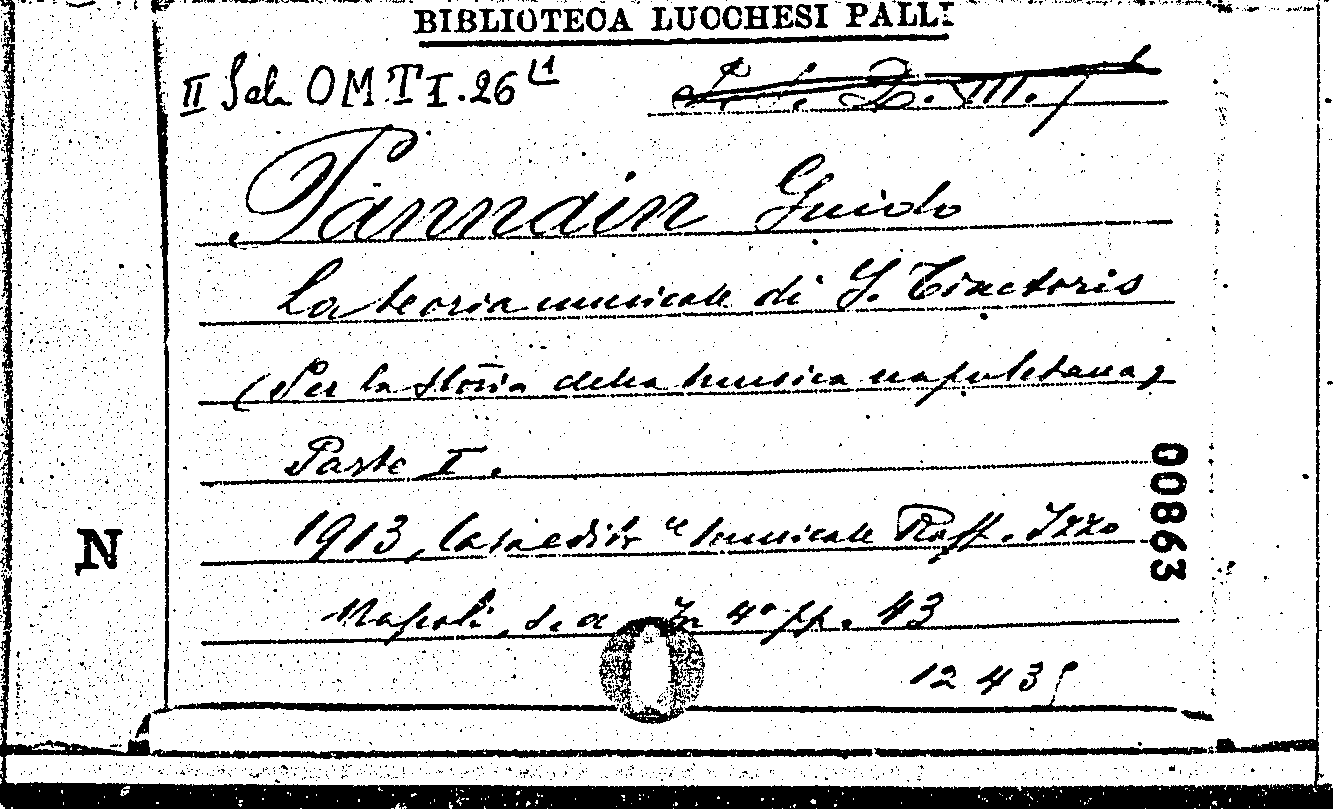 BIBLIOTECA LUCCHESI PALLI
II Sal. O M T I. 26
Pannain Guido
La teoria musicale di J. Tinctoris
(Per la storia della musica napoletana)
Parte I.
1913, Casa editr musicale Raff. Izzo
Napoli, s. a In 4° pp. 43
1243
N
00863